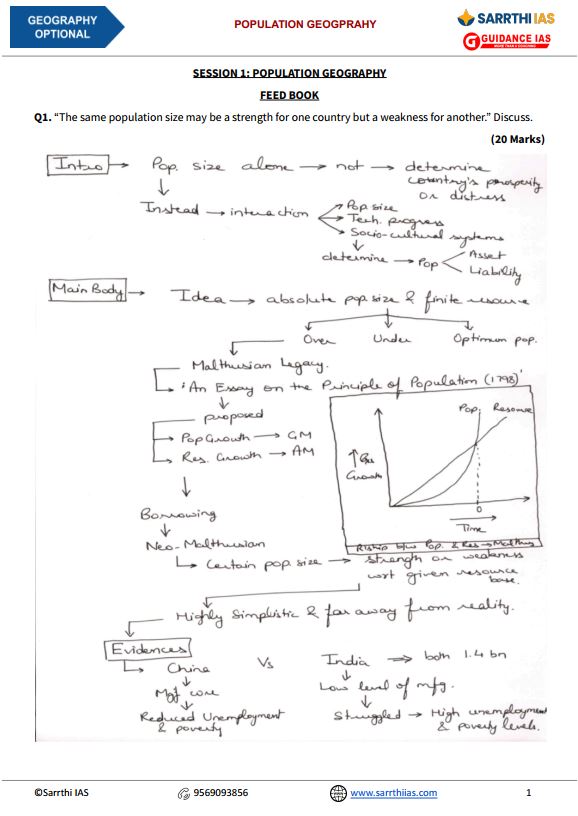 GEOGRAPHY
OPTIONAL
POPULATION GEOGPRAHY
SARRTHI IAS
GUIDANCE IAS
MORE THAN A COACHING
SESSION 1: POPULATION GEOGRAPHY
FEED BOOK
Q1. “The same population size may be a strength for one country but a weakness for another.” Discuss.
(20 Marks)
Intro → Pop. size alone → not → determine
country's prosperity
or distress
Instead → interaction
Pop size
Tech. progress
Socio-cultural systems
determine → Pop
Asset
Liability
Main Body → Idea → absolute pop size & finite resource
Over
Under
Optimum pop.
Malthusian Legacy.
'An Essay on the Principle of Population (1798)'
proposed
Pop Growth → GM
Res. Growth → AM
Pop.
Resource
↑
Growth
0
Time
R/ship b/w Pop. & Res → Malthus
Borrowing
Neo-Malthusian
Certain pop size → strength or weakness
wrt given resource
base.
Highly Simplistic & far away from reality.
Evidences
China Vs India ⇒ both 1.4 bn
Mgf core
Low level of mfg.
Reduced Unemployment
& poverty
Struggled → High unemployment
& poverty levels.
©Sarrthi IAS
9569093856
www.sarrthiias.com
1